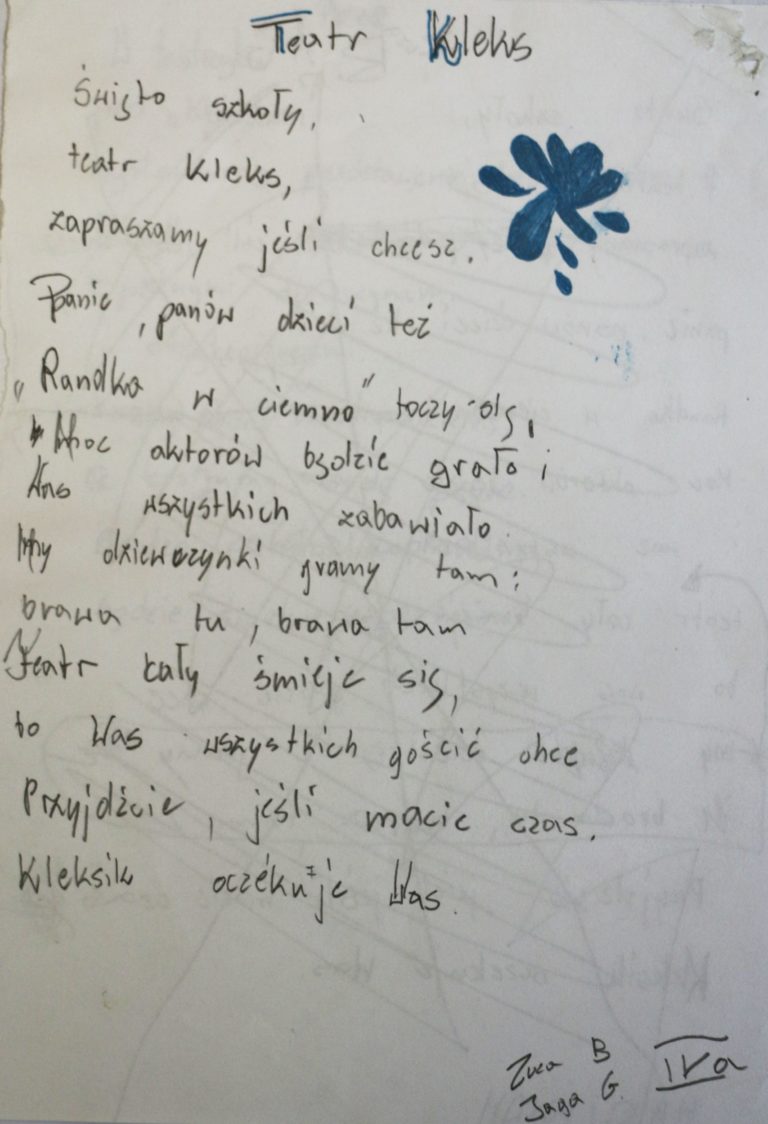 Teatr Kleks
Święto szkoły,
teatr kleks,
zapraszamy jeśli chcesz.
Panie, panów dzieci też
„Randka w ciemno" toczy
Moc aktorów będzie grało i
Was wszystkich zabawiało.
My dziewczynki gramy tam:
brawa tu, brawa tam
Teatr cały śmieje się,
bo Was wszystkich gościć chce
Przyjdźcie, jeśli macie czas.
Kleksik oczekuje Was.
Zuza B
Jaga G.
IVa